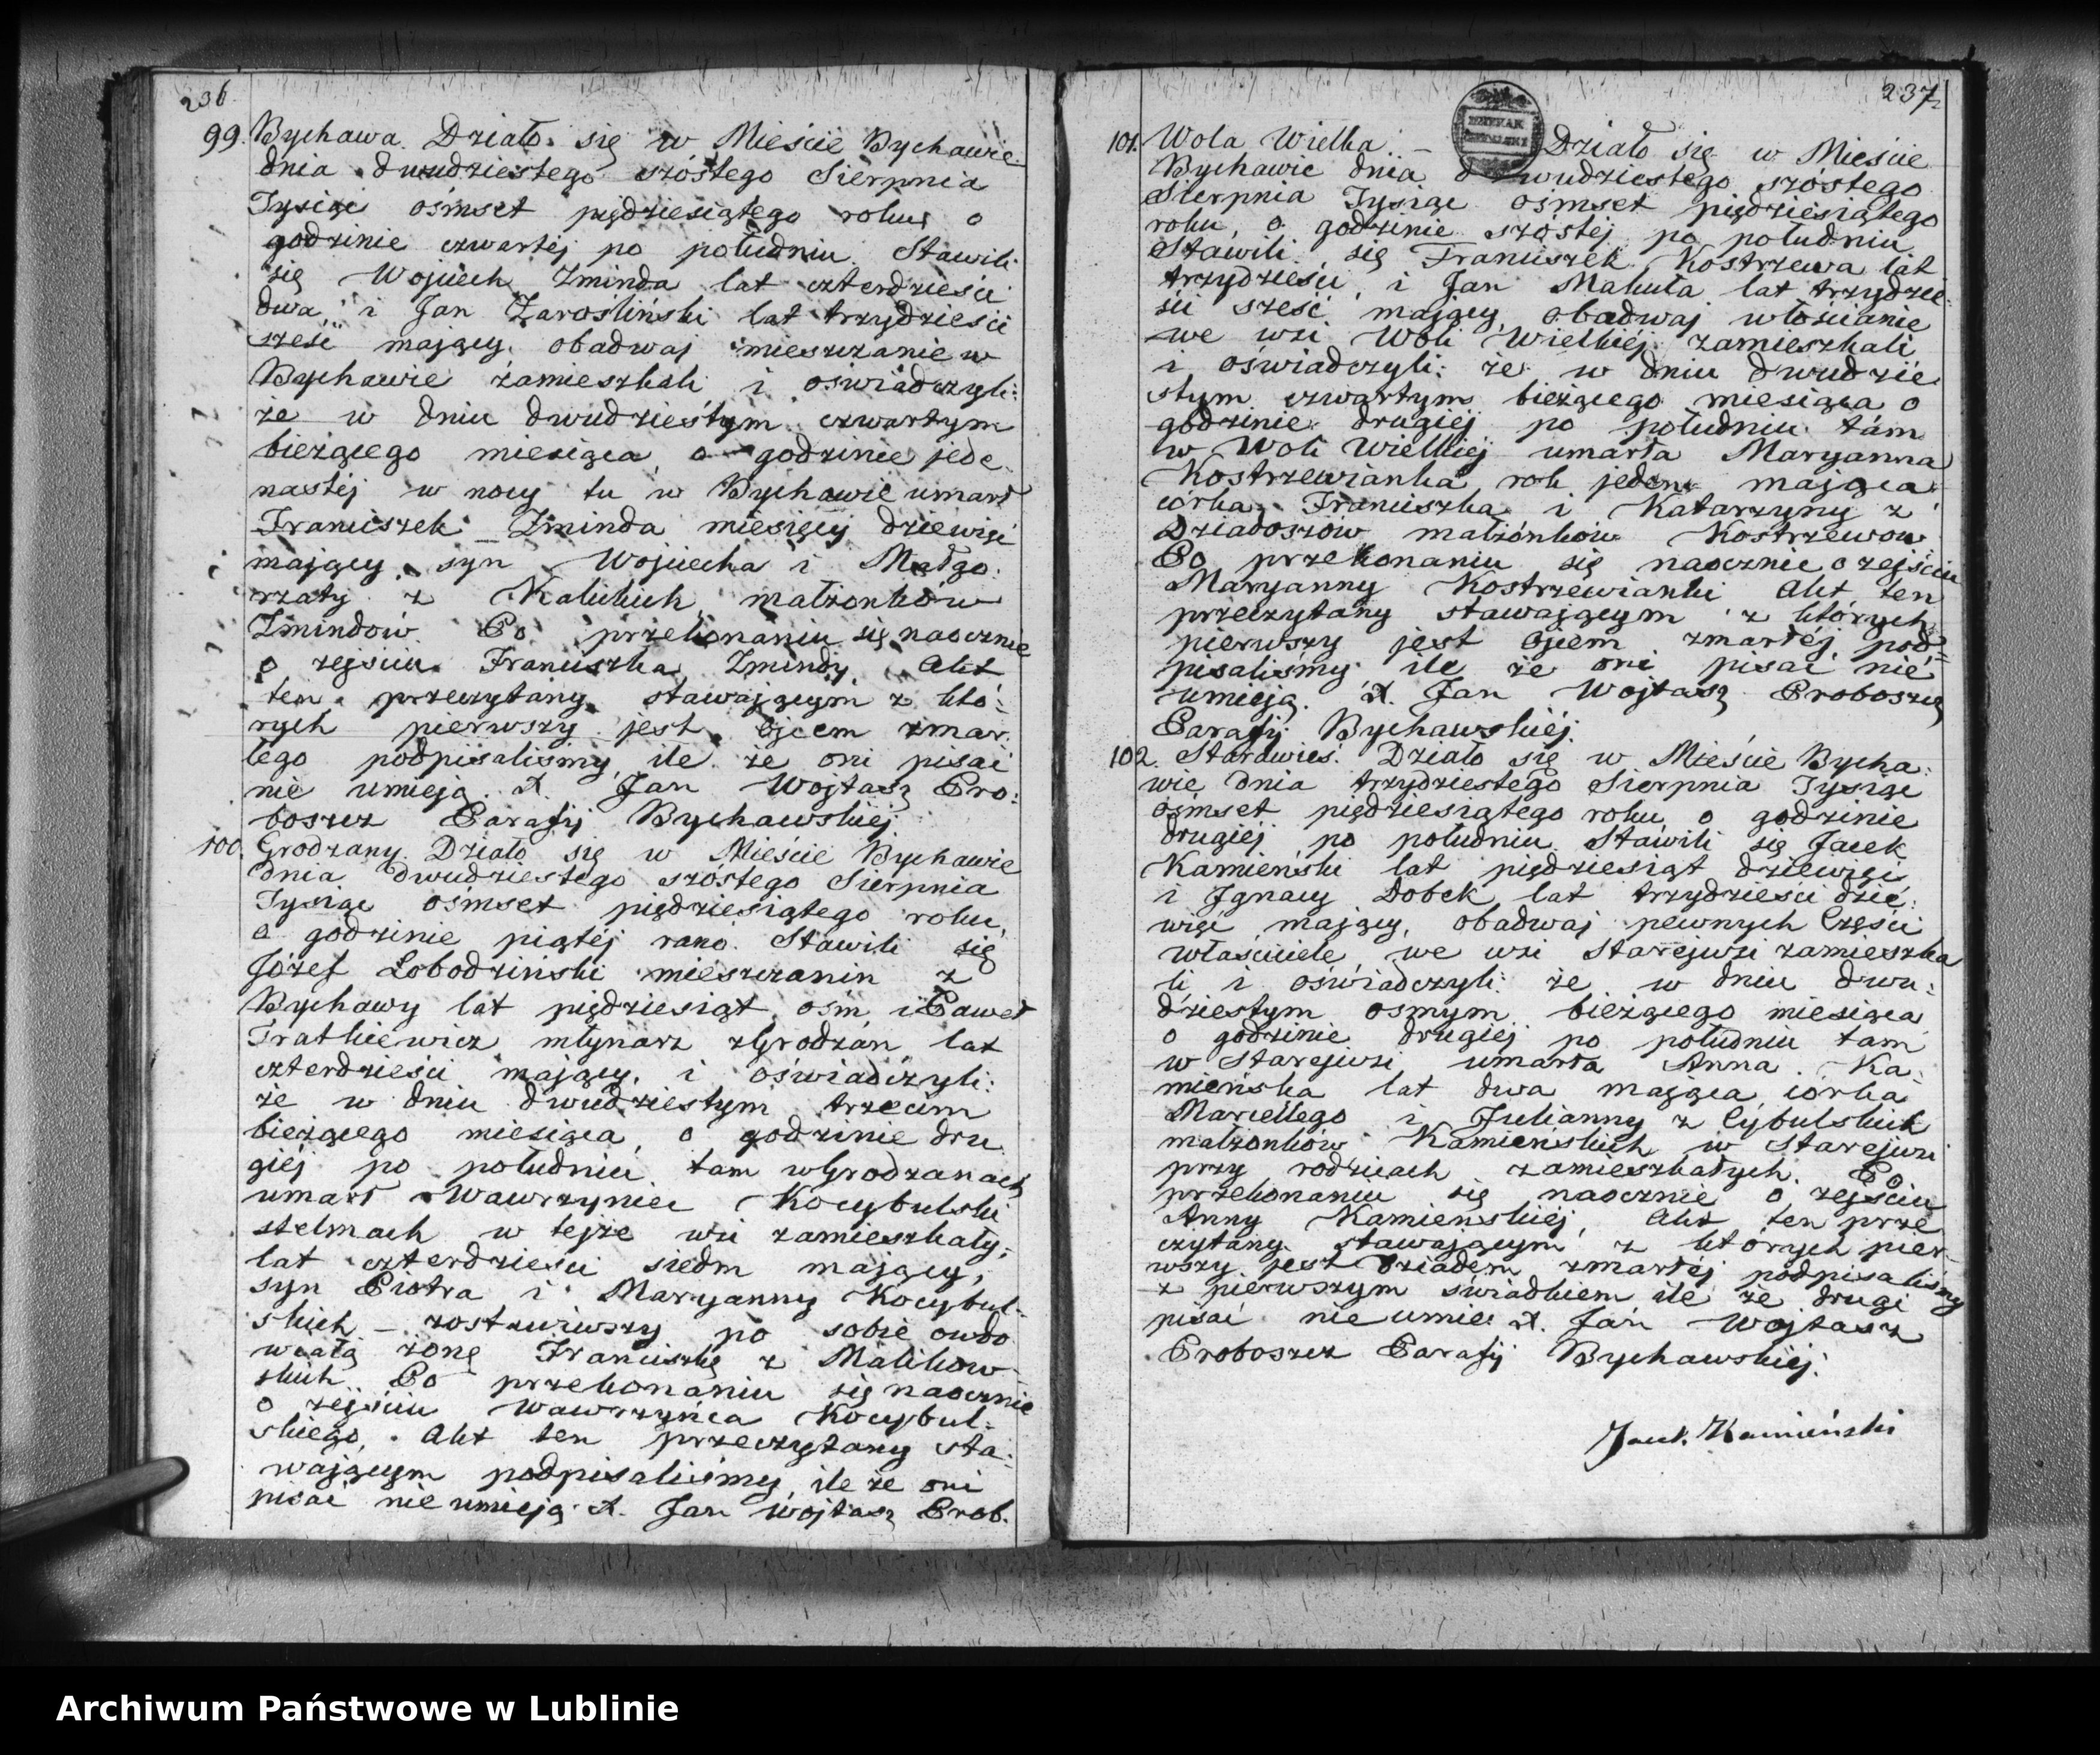 236
99. Bychawa. Działo się w Mieście Bychawie
dnia dwudziestego szóstego Sierpnia
Tysiąc ośmset pięćdziesiątego roku, o
godzinie czwartéj po południu. Stawili
się Wojciech Zminda lat czterdzieści
dwa, i Jan Zarośliński lat trzydzieści
sześć mający, obadwaj mieszczanie w
Bychawie zamieszkali i oświadczyli:
że w dniu dwudziestym czwartym
bieżącego miesiąca, o godzinie jede
nastéj w nocy tu w Bychawie umarł
Franciszek Zminda miesięcy dziewięć
mający, syn Wojciecha i Małgo:
rzaty z Kalickich, małżonków
Zmindów. Po przekonaniu się naocznie
o zejściu Franciszka Zmindy, Akt
ten przeczytany stawającym z któ:
rych pierwszy jest Ojcem zmar
łego podpisaliśmy, ile że oni pisać
nie umieją. X. Jan Wojtasz Pro:
boszcz Parafij Bychawskiéj.
100. Grodzany. Działo się w Mieście Bychawie
dnia dwudziestego szóstego Sierpnia
Tysiąc ośmset pięćdziesiątego roku,
o godzinie piątéj rano. Stawili się
Józef Łobodziński mieszczanin z
Bychawy lat pięćdziesiąt ośm, i Paweł
Tratkiewicz młynarz z Grodzan lat
czterdzieści mający, i oświadczyli:
że w dniu dwudziestym trzecim
bieżącego miesiąca, o godzinie dru
giéj po południu tam w Grodzanach
umarł Wawrzyniec Kocybulski
stelmach w tejże wsi zamieszkały,
lat czterdzieści siedm mający,
syn Piotra i Maryanny Kocybul:
skich – zostawiwszy po sobie owdo
wiałą żonę Franciszkę z Malikow
skich. Po przekonaniu się naocznie
o zejściu Wawrzyńca Kocybul:
skiego, Akt ten przeczytany sta:
wającym podpisaliśmy, ile że oni
pisać nie umieją. X. Jan Wojtasz Prob.
237.
101. Wola Wielka. – Działo się w Mieście
Bychawie dnia dwudziestego szóstego
Sierpnia Tysiąc ośmset pięćdziesiątego
roku, o godzinie szóstéj po południu
Stawili się Franciszek Kostrzewa lat
trzydzieści, i Jan Makuła lat trzydzie
ści sześć mający, obadwaj włościanie
we wsi Woli Wielkiéj zamieszkali
i oświadczyli: że w dniu dwudzie
stym czwartym bieżącego miesiąca o
godzinie drugiéj po południu tam
w Woli Wielkiéj umarła Maryanna
Kostrzewianka, rok jeden mająca
córka Franciszka i Katarzyny z
Dziadoszów małżonków Kostrzewów
Po przekonaniu się naocznie o zejściu
Maryanny Kostrzewianki Akt ten
przeczytany stawającym z których
pierwszy jest Ojcem zmarłéj, pod=
pisaliśmy ile że oni pisać nie
umieją. X. Jan Wojtasz Proboszcz
Parafij Bychawskiéj.
102. Starawieś. Działo się w Mieście Bycha:
wie dnia trzydziestego Sierpnia Tysiąc
ośmset pięćdziesiątego roku, o godzinie
drugiej po południu. Stawili się Jacek
Kamieński lat pięćdziesiąt dziewięć
i Ignacy Dobek lat trzydzieści dzie:
więć mający, obadwaj pewnych Części
właściciele we wsi Starejwsi zamieszka
li i oświadczyli: że w dniu dwu:
dziestym osmym bieżącego miesiąca
o godzinie drugiej po południu tam
w Starejwsi umarła Anna Ka:
mieńska lat dwa mająca, córka
Marcellego i Julianny z Cybulskich
małżonków Kamieńskich w Starejwsi
przy rodzicach zamieszkałych. Po
przekonaniu się naocznie o zejściu
Anny Kamieńskiéj, Akt ten prze
czytany stawającym, z których pier
wszy jest Dziadem zmarłéj podpisaliśmy
z pierwszym świadkiem ile że drugi
pisać nie umie. X. Jan Wojtasz
Proboszcz Parafij Bychawskiéj.
Jacek Kamieński
Archiwum Państwowe w Lublinie